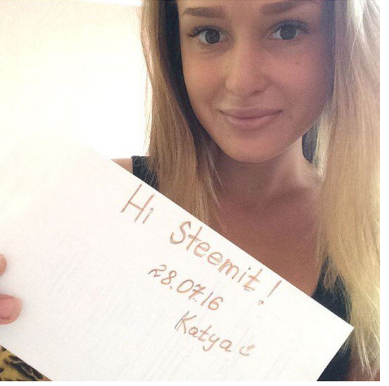 Hi Steemit!
28.07.16
Katya